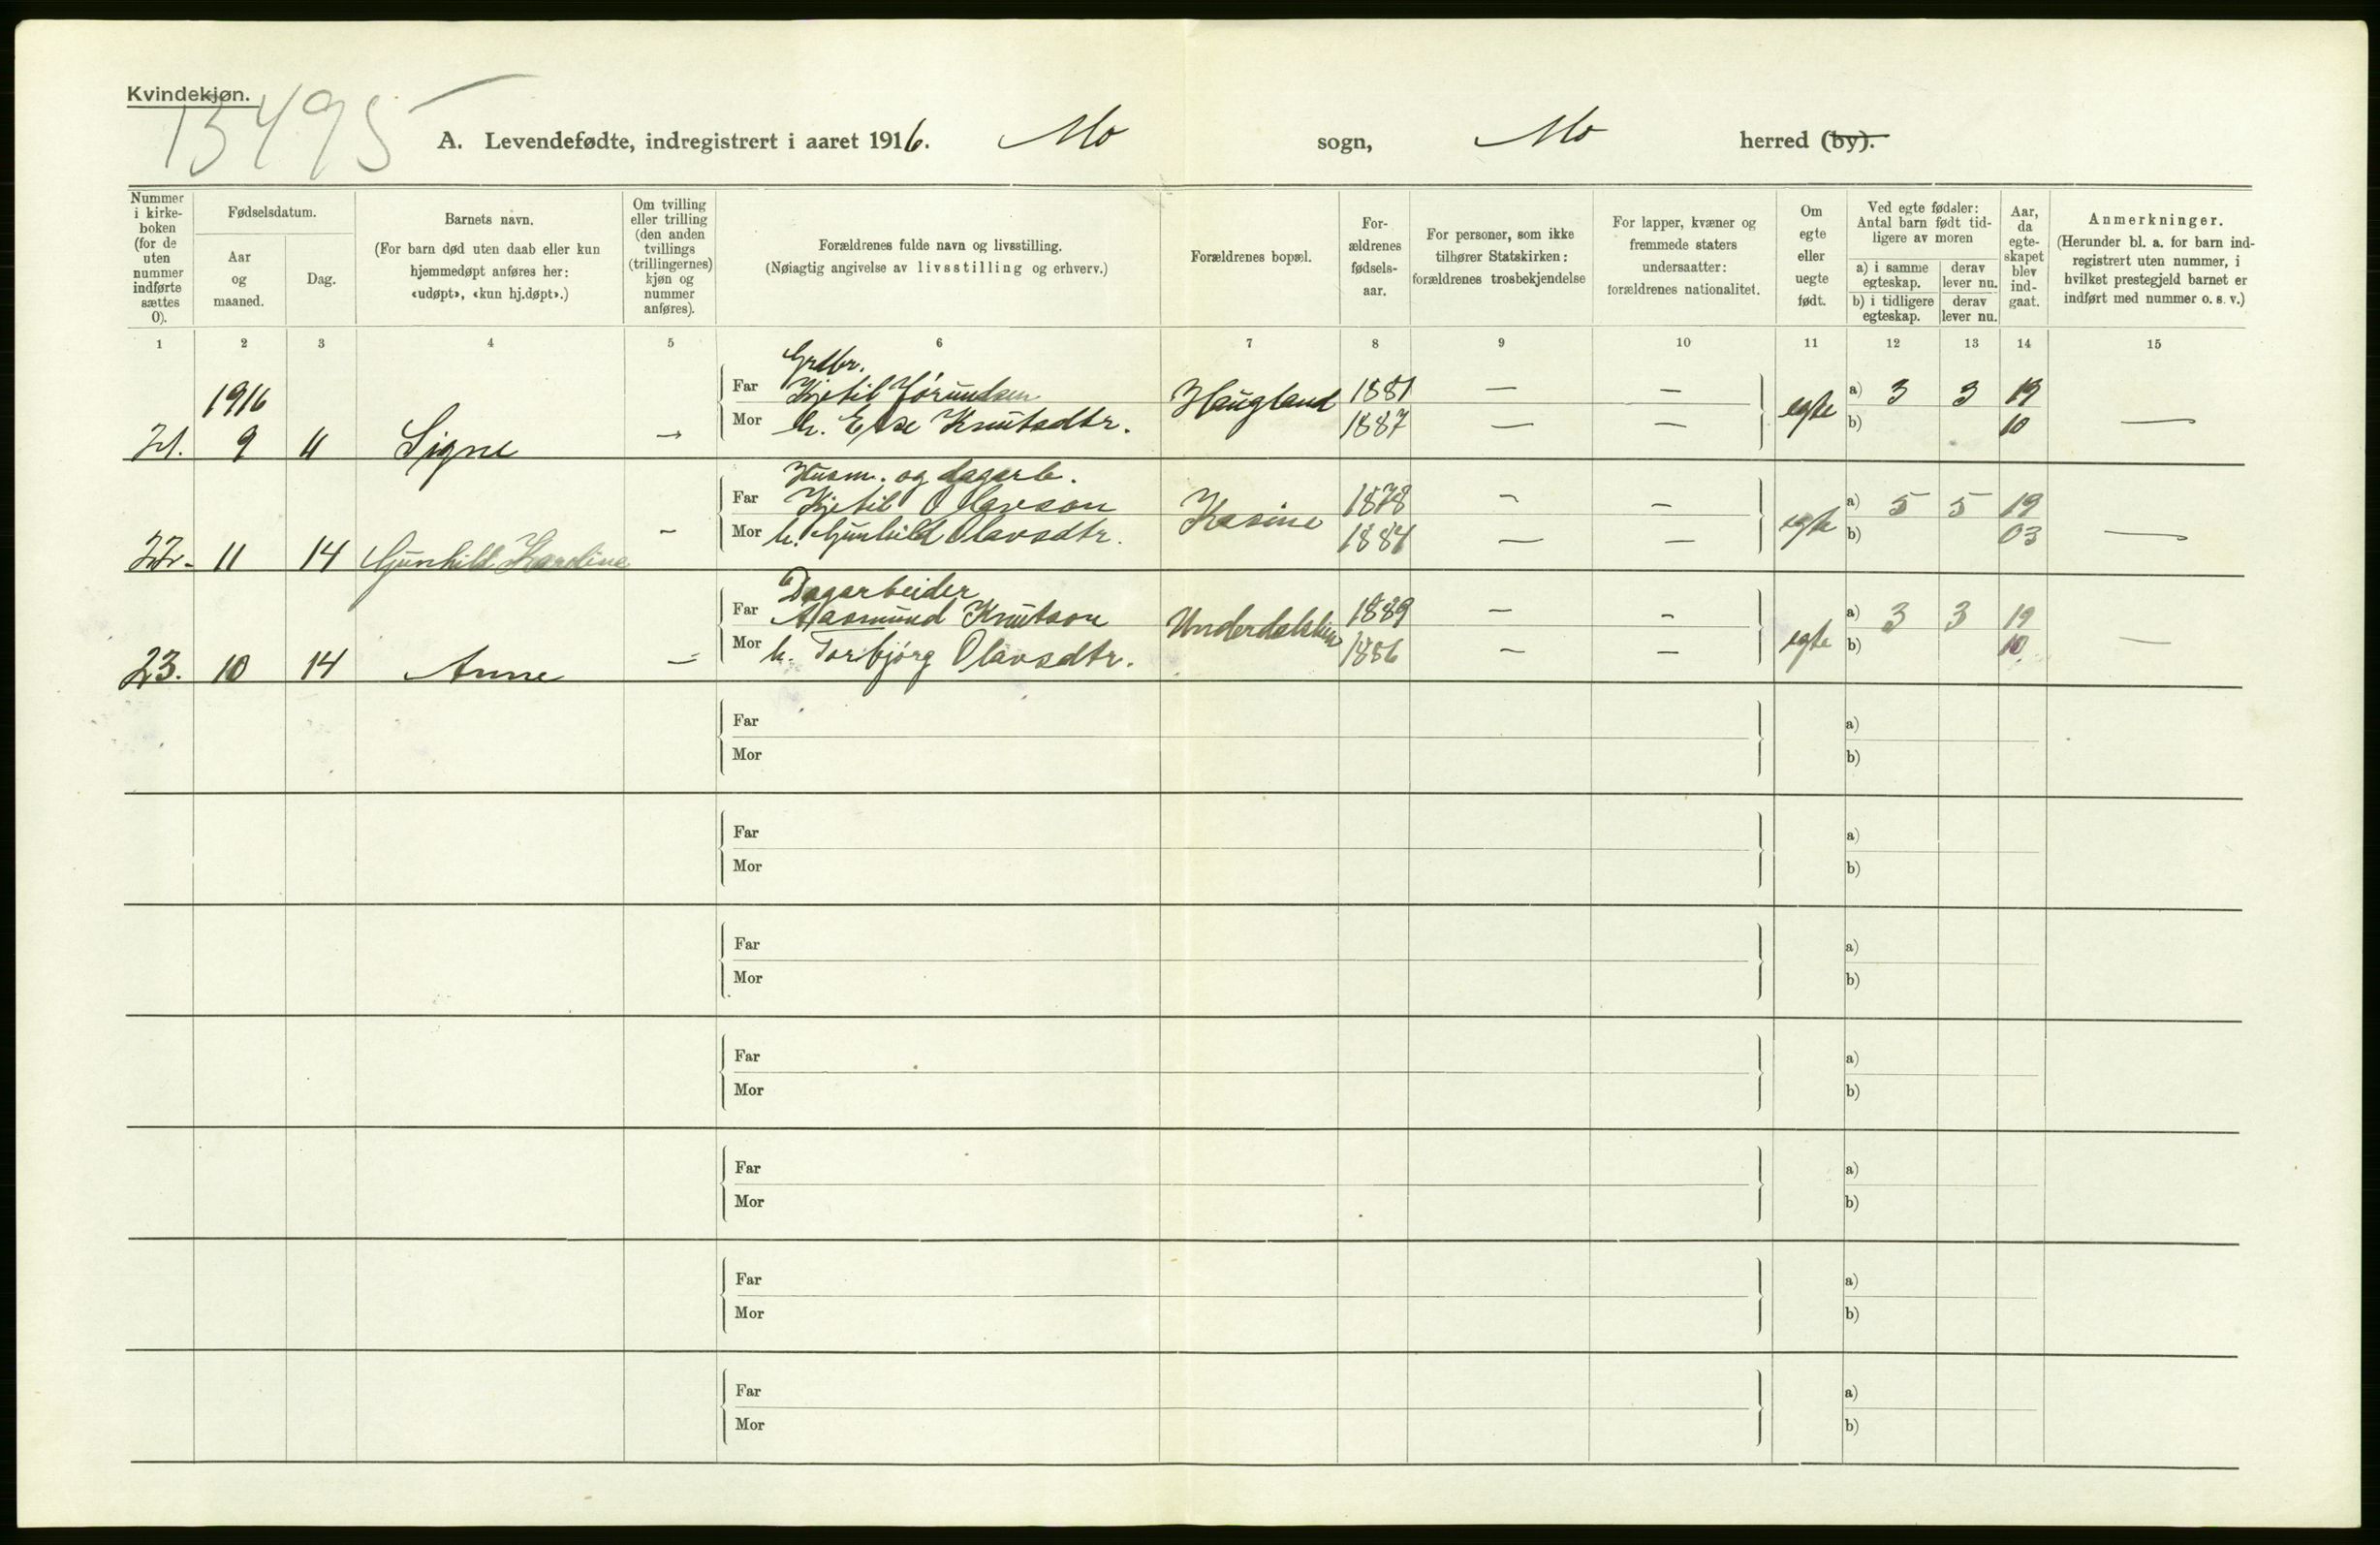 Kvindekjøn.
13495
A. Levendefødte, indregistrert i aaret 1916. Mo sogn, Mo herred (by).
Nummer i kirke-boken (for de uten nummer indførte sættes 0).
Fødselsdatum.
Aar og maaned.
Dag.
Barnets navn.
(For barn død uten daab eller kun hjemmedøpt anføres her: «udøpt», «kun hj.døpt».)
Om tvilling eller trilling (den anden tvillings (trillingernes) kjøn og nummer anføres).
Forældrenes fulde navn og livsstilling.
(Nøiagtig angivelse av livsstilling og erhverv.)
Forældrenes bopæl.
For-ældrenes fødsels-aar.
For personer, som ikke tilhører Statskirken: forældrenes trosbekjendelse
For lapper, kvæner og fremmede staters undersaatter: forældrenes nationalitet.
Om egte eller uegte født.
Ved egte fødsler: Antal barn født tid-ligere av moren
a) i samme egteskap.
derav lever nu.
b) i tidligere egteskap.
derav lever nu.
Aar, da egte-skapet blev ind-gaat.
Anmerkninger.
(Herunder bl. a. for barn ind-registrert uten nummer, i hvilket prestegjeld barnet er indført med nummer o. s. v.)
1 2 3 4 5 6 7 8 9 10 11 12 13 14 15
Grdbr.
1916 Far Kjetil Jørundsen Haugland 1881 — — egte a) 3 3 19
21. 9 11 Signe — Mor h. Else Knutsdtr. 1887 — — b) 10 —
Husm. og dagarb.
Far Kjetil Olavson 1878 — — egte a) 5 5 19
22. 11 14 Gunhild Karoline — Mor h. Gunhild Olavsdtr. 1884 — — b) 03 —
Dagarbeider
Far Aasmund Knutson 1889 — — egte a) 3 3 19
23. 10 14 Anne — Mor h. Torbjørg Olavsdtr. 1886 — — b) 10 —
Far a)
Mor b)
Far a)
Mor b)
Far a)
Mor b)
Far a)
Mor b)
Far a)
Mor b)
Far a)
Mor b)
Far a)
Mor b)